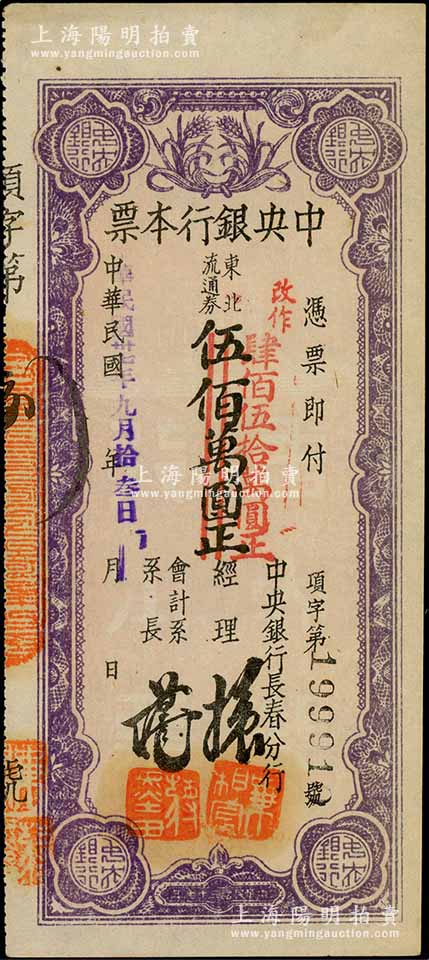 上海陽明拍賣
www.yangmingauction.com
中央銀行本票
憑票即付
項字第19991號
改作肆佰伍拾萬圓正
東北流通券
伍佰萬圓正
中央銀行長春分行
經理
會計系
系長
中華民國 年 月 日
民國卅七年九月拾叁日
項字第
號
中央銀行
中央銀行
中央銀行
中央銀行
上海陽明拍賣
www.yangmingauction.com
上海陽明拍賣
www.yangmingauction.com